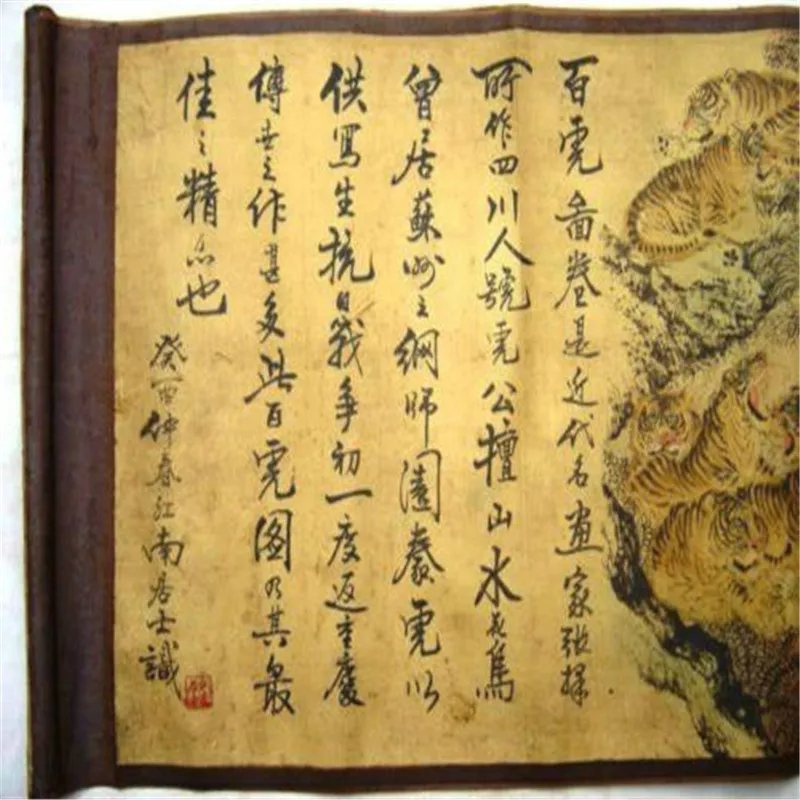 百虎畵卷是近代名畫家張探
所作四川人號虎公擅山水花鳥
曾居蘇州之網师園豢虎以
供寫生抗日戰争初一度返重慶
傳世之作甚多此百虎图乃其最
佳之精品也
癸酉仲春江南居士識